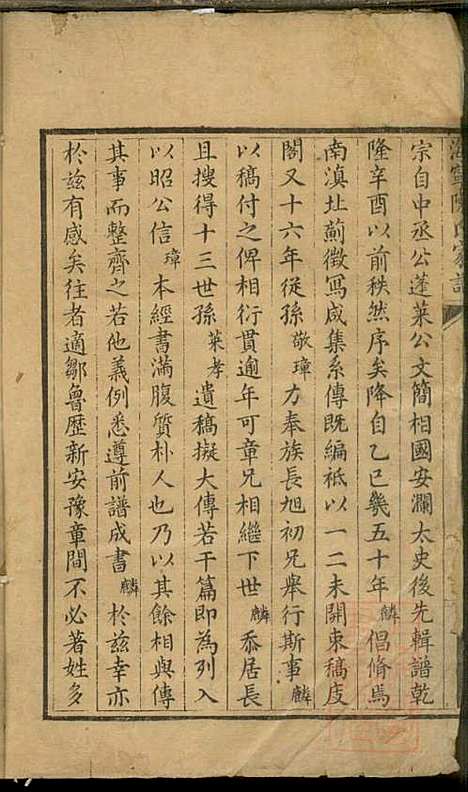 海寧陳氏家譜
宗自中丞公蓬萊公文簡相國安瀾太史後先輯譜乾
隆辛酉以前秩然序矣降自乙巳幾五十年麟倡脩焉
南滇北薊徵寫咸集系傳既編祇以一二未開束稿庋
閣又十六年從孫敬璋力奉族長旭初兄舉行斯事麟
以稿付之俾相衍貫逾年可章兄相繼下世麟忝居長
且搜得十三世孫萊孝遺稿擬大傳若干篇即為列入
以昭公信璋本經書滿腹質朴人也乃以其餘相與傳
其事而整齊之若他義例悉遵前譜成書麟於茲幸亦
於茲有感矣往者適鄒魯歷新安豫章間不必著姓多